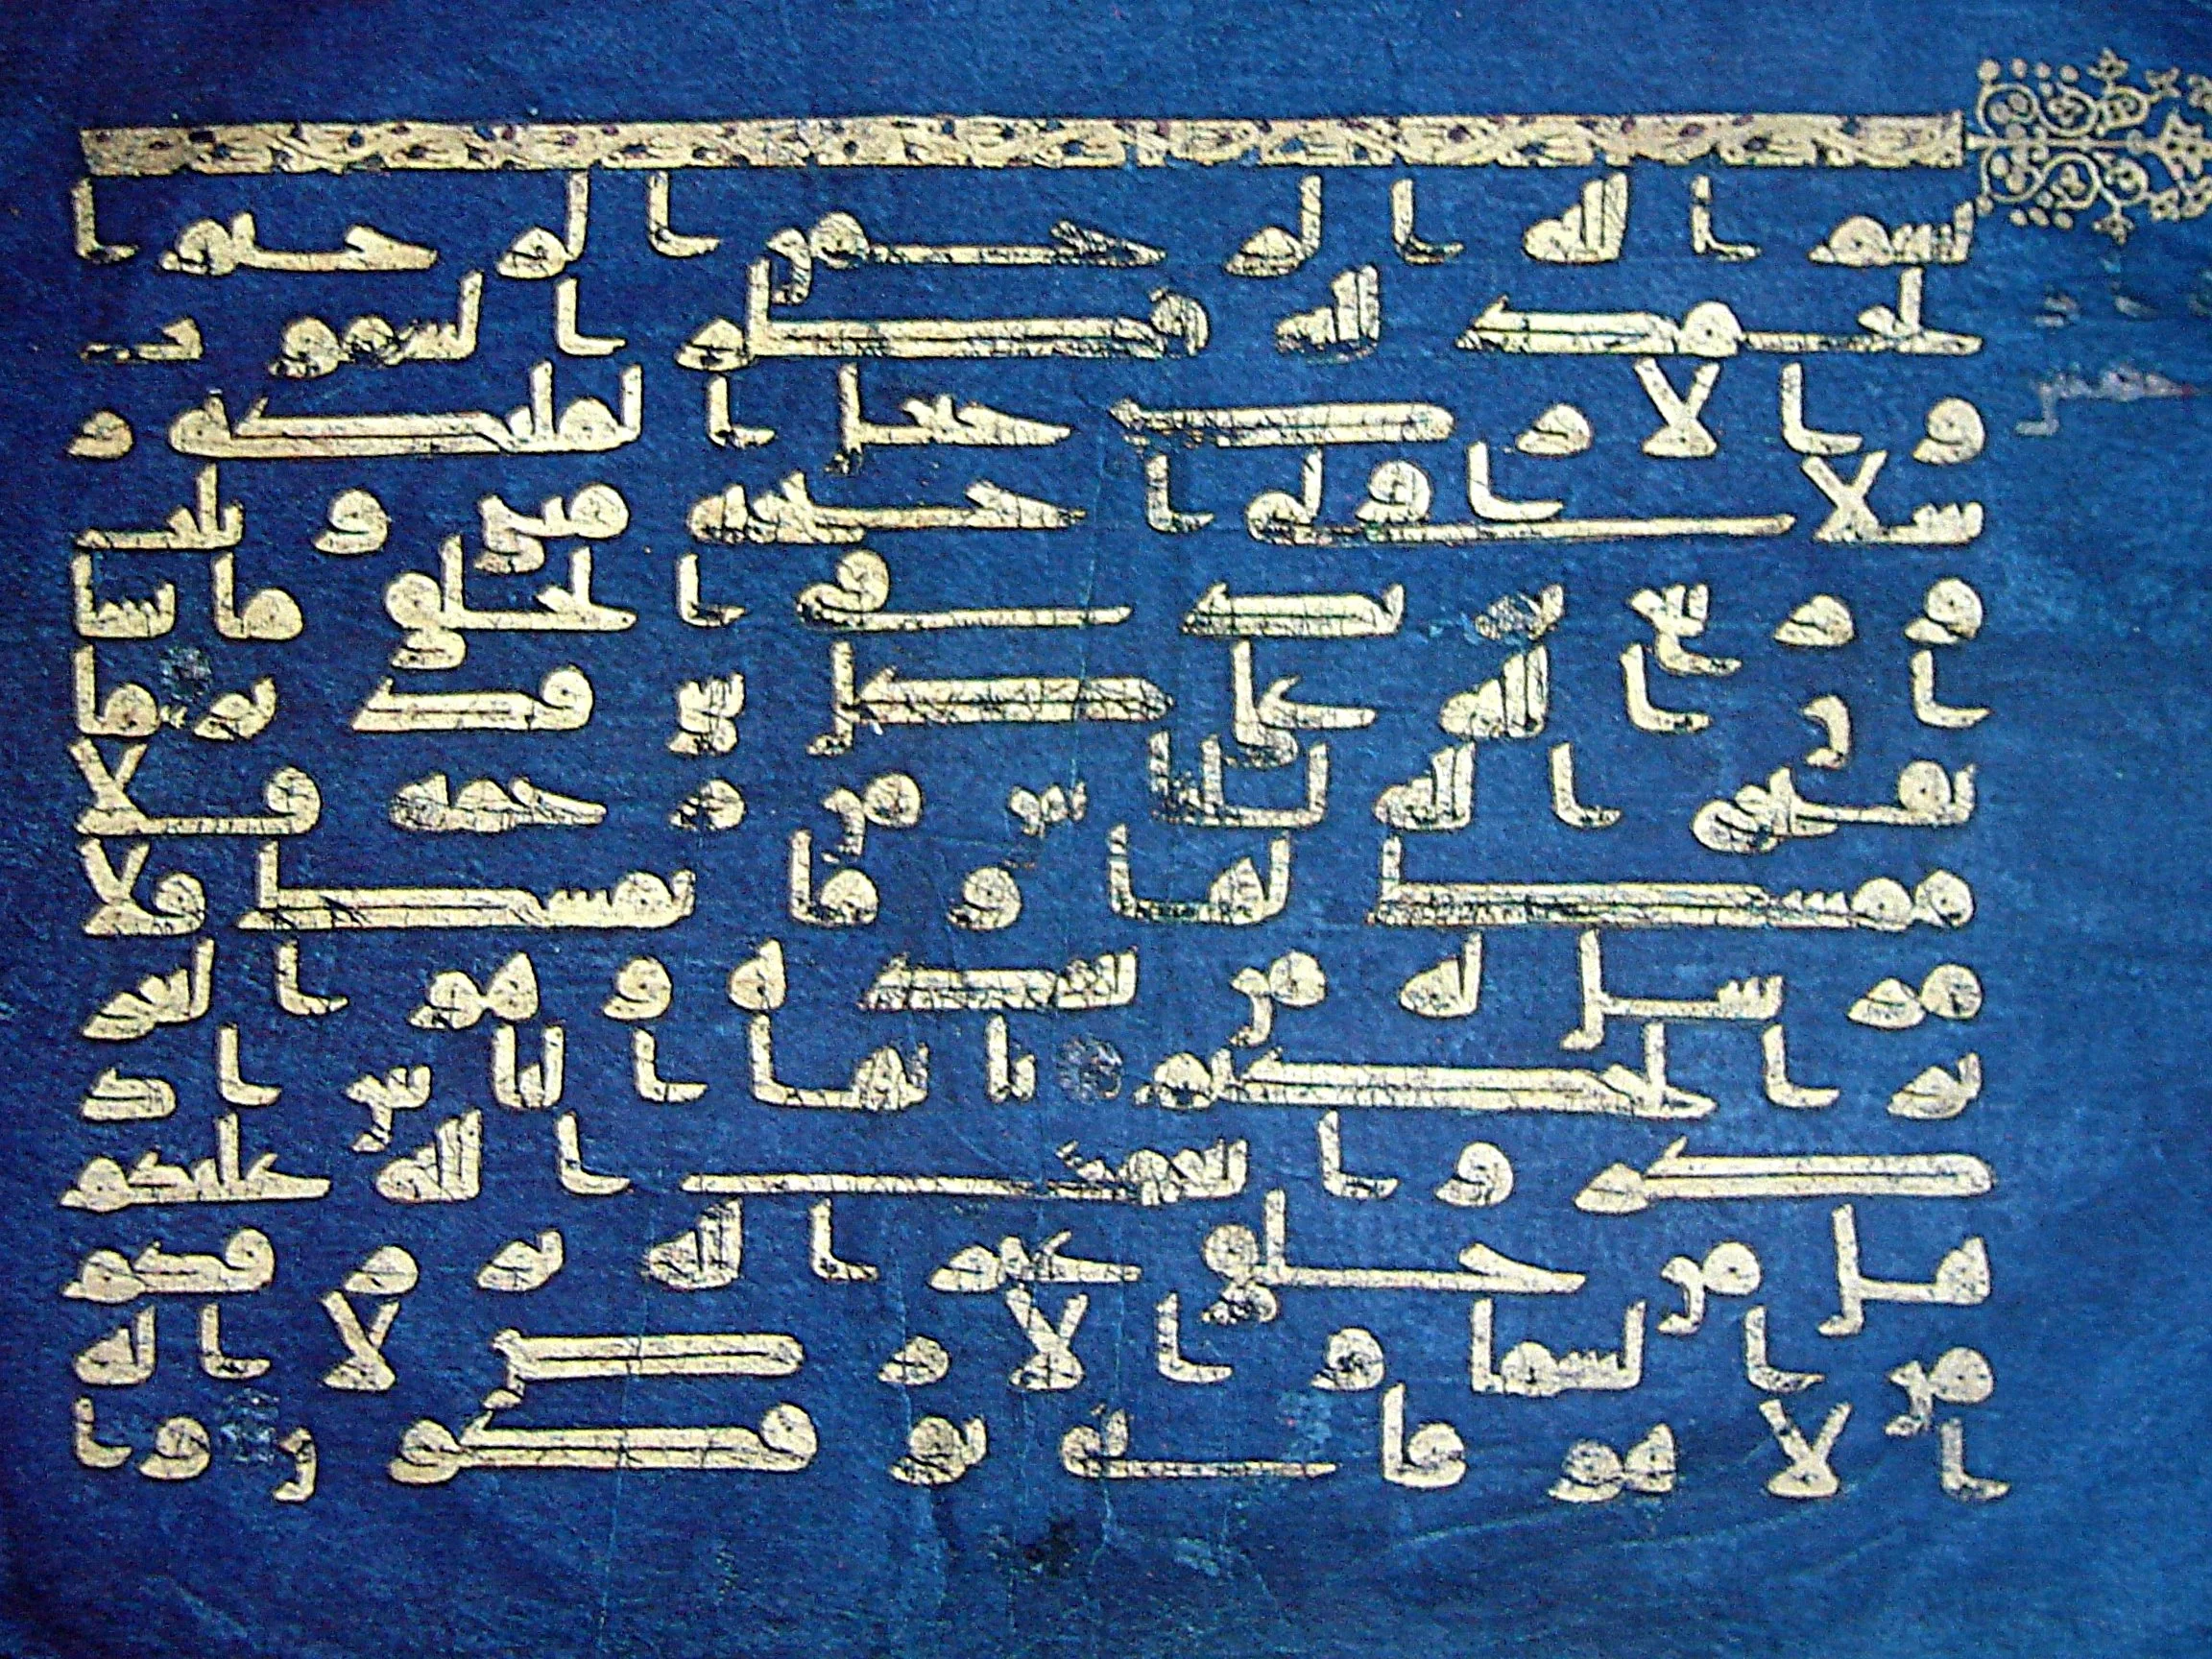 بسم الله الرحمن الرحيم ا
لحمد لله فطر السموت
والارض جعل الملئكة ر
سلا اولى اجنحة مثنى وثلث
وربع يزيد في الخلق ما يشا
ان الله على كل شي قدير ما
يفتح الله للناس من رحمة فلا
ممسك لها وما يمسك فلا
مرسل له من بعده وهو العز
يز الحكيم يايها الناس اذ
كروا نعمت الله عليكم
هل من خلق غير الله يرزقكم
من السما والارض لا اله
الا هو فانى توفكون وا